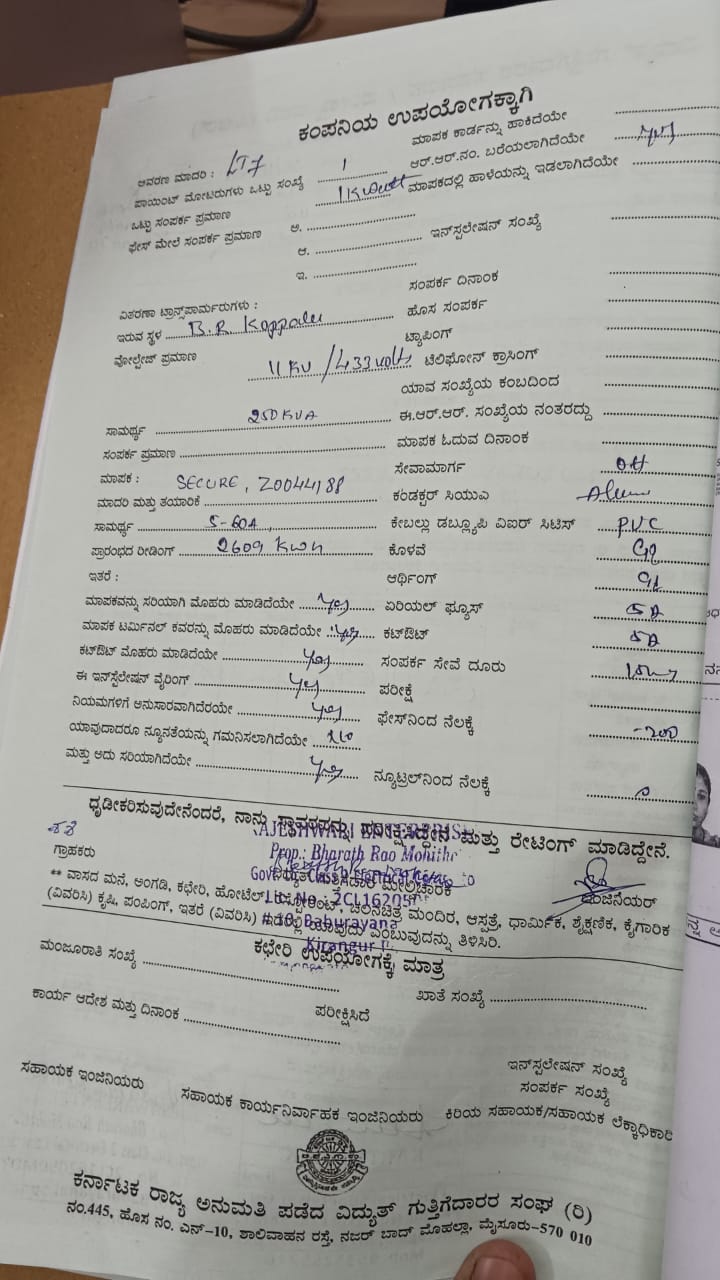 ಕಂಪನಿಯ ಉಪಯೋಗಕ್ಕಾಗಿ
ಆವರಣ ಮಾದರಿ : LT7
ಪಾಯಿಂಟ್ ಮೋಟರುಗಳು ಒಟ್ಟು ಸಂಖ್ಯೆ 1
ಒಟ್ಟು ಸಂಪರ್ಕ ಪ್ರಮಾಣ 1Kwatt
ಫೇಸ್ ಮೇಲೆ ಸಂಪರ್ಕ ಪ್ರಮಾಣ ಅ.
ಆ.
ಇ.
ವಿತರಣಾ ಟ್ರಾನ್ಸ್‌ಪಾರ್ಮರುಗಳು :
ಇರುವ ಸ್ಥಳ B.R Koppalu
ವೋಲ್ಟೇಜ್ ಪ್ರಮಾಣ 11 KV /433 volts
ಸಾಮರ್ಥ್ಯ 250 KVA
ಸಂಪರ್ಕ ಪ್ರಮಾಣ
ಮಾಪಕ : SECURE,
ಮಾದರಿ ಮತ್ತು ತಯಾರಿಕೆ
ಸಾಮರ್ಥ್ಯ 5-60A
ಪ್ರಾರಂಭದ ರೀಡಿಂಗ್ 2609 KWH
ಇತರೆ :
ಮಾಪಕವನ್ನು ಸರಿಯಾಗಿ ಮೊಹರು ಮಾಡಿದೆಯೇ Yes
ಮಾಪಕ ಟರ್ಮಿನಲ್ ಕವರನ್ನು ಮೊಹರು ಮಾಡಿದೆಯೇ Yes
ಕಟ್‌ಔಟ್ ಮೊಹರು ಮಾಡಿದೆಯೇ Yes
ಈ ಇನ್‌ಸ್ಟಲೇಷನ್ ವೈರಿಂಗ್ Yes
ನಿಯಮಗಳಿಗೆ ಅನುಸಾರವಾಗಿದೆರಯೇ Yes
ಯಾವುದಾದರೂ ನ್ಯೂನತೆಯನ್ನು ಗಮನಿಸಲಾಗಿದೆಯೇ No
ಮತ್ತು ಅದು ಸರಿಯಾಗಿದೆಯೇ Yes
ಮಾಪಕ ಕಾರ್ಡನ್ನು ಹಾಕಿದೆಯೇ
ಆರ್.ಆರ್.ನಂ. ಬರೆಯಲಾಗಿದೆಯೇ Yes
ಮಾಪಕದಲ್ಲಿ ಹಾಳೆಯನ್ನು ಇಡಲಾಗಿದೆಯೇ
ಇನ್‌ಸ್ಪಲೇಷನ್ ಸಂಖ್ಯೆ
ಸಂಪರ್ಕ ದಿನಾಂಕ
ಹೊಸ ಸಂಪರ್ಕ
ಟ್ಯಾಪಿಂಗ್
ಟೆಲಿಫೋನ್ ಕ್ರಾಸಿಂಗ್
ಯಾವ ಸಂಖ್ಯೆಯ ಕಂಬದಿಂದ
ಈ.ಆರ್.ಆರ್. ಸಂಖ್ಯೆಯ ನಂತರದ್ದು
ಮಾಪಕ ಓದುವ ದಿನಾಂಕ
ಸೇವಾಮಾರ್ಗ OH
ಕಂಡಕ್ಟರ್ ಸಿಯುಎ
ಕೇಬಲ್ಲು ಡಬ್ಲ್ಯೂಪಿ ವಿಐರ್ ಸಿಟಿಸ್ P.V.C
ಕೊಳವೆ GI
ಆರ್ಥಿಂಗ್ GI
ಏರಿಯಲ್ ಫ್ಯೂಸ್ 5A
ಕಟ್‌ಔಟ್ 5A
ಸಂಪರ್ಕ ಸೇವೆ ದೂರು
ಪರೀಕ್ಷೆ
ಫೇಸ್‌ನಿಂದ ನೆಲಕ್ಕೆ
ನ್ಯೂಟ್ರಲ್‌ನಿಂದ ನೆಲಕ್ಕೆ 0
ಧೃಡೀಕರಿಸುವುದೇನೆಂದರೆ, ನಾನು ಪರೀಕ್ಷಿಸಿದ್ದೇನೆ ಮತ್ತು ರೇಟಿಂಗ್ ಮಾಡಿದ್ದೇನೆ.
Prop.: Bharath Rao Mohithe
ಗ್ರಾಹಕರು
ಮೇಲ್ವಿಚಾರಕ
ಇಂಜಿನಿಯರ್
** ವಾಸದ ಮನೆ, ಅಂಗಡಿ, ಕಛೇರಿ, ಹೋಟೆಲ್ ಚಲನಚಿತ್ರ ಮಂದಿರ, ಆಸ್ಪತ್ರೆ, ಧಾರ್ಮಿಕ, ಶೈಕ್ಷಣಿಕ, ಕೈಗಾರಿಕ
(ವಿವರಿಸಿ) ಕೃಷಿ, ಪಂಪಿಂಗ್, ಇತರೆ (ವಿವರಿಸಿ) ಯಾವುದು ಎಂಬುವುದನ್ನು ತಿಳಿಸಿರಿ.
# 10, Baburayana
Kirangur
ಕಛೇರಿ ಉಪಯೋಗಕ್ಕೆ ಮಾತ್ರ
ಮಂಜೂರಾತಿ ಸಂಖ್ಯೆ
ಖಾತೆ ಸಂಖ್ಯೆ
ಕಾರ್ಯ ಆದೇಶ ಮತ್ತು ದಿನಾಂಕ
ಪರೀಕ್ಷಿಸಿದೆ
ಇನ್‌ಸ್ಪಲೇಷನ್ ಸಂಖ್ಯೆ
ಸಂಪರ್ಕ ಸಂಖ್ಯೆ
ಸಹಾಯಕ ಇಂಜಿನಿಯರು ಸಹಾಯಕ ಕಾರ್ಯನಿರ್ವಾಹಕ ಇಂಜಿನಿಯರು ಕಿರಿಯ ಸಹಾಯಕ/ಸಹಾಯಕ ಲೆಕ್ಕಾಧಿಕಾರಿ
ಕರ್ನಾಟಕ ರಾಜ್ಯ ಅನುಮತಿ ಪಡೆದ ವಿದ್ಯುತ್ ಗುತ್ತಿಗೆದಾರರ ಸಂಘ (ರಿ)
ನಂ.445, ಹೊಸ ನಂ. ಎನ್-10, ಶಾಲಿವಾಹನ ರಸ್ತೆ, ನಜರ್ ಬಾದ್ ಮೊಹಲ್ಲಾ, ಮೈಸೂರು-570 010